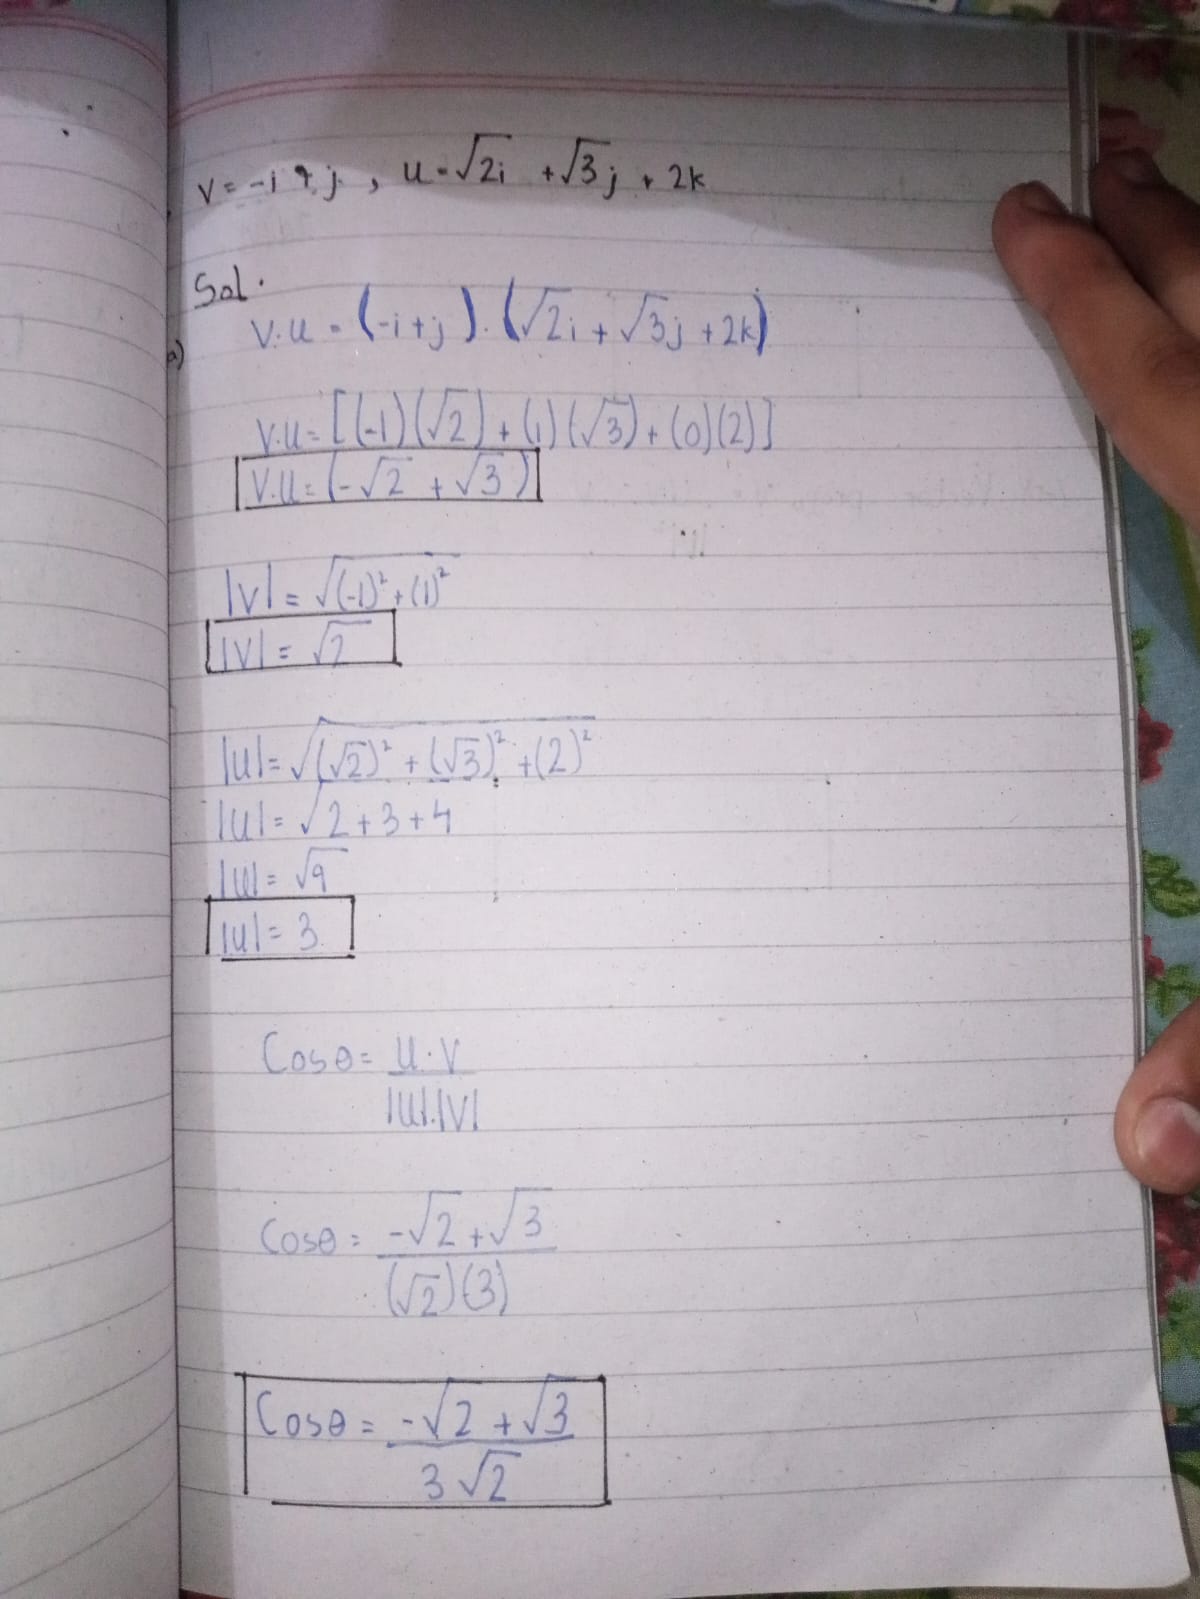 V = -i + j , u = √2i + √3j + 2k
Sol.
a) V.u = (-i + j) . (√2i + √3j + 2k)
V.u = [(-1)(√2) + (1)(√3) + (0)(2)]
V.u = (-√2 + √3)
|V| = √(-1)² + (1)²
|V| = √2
|u| = √(√2)² + (√3)² + (2)²
|u| = √2+3+4
|u| = √9
|u| = 3
Cosθ = u.V
|u|.|V|
Cosθ = -√2 + √3
(√2)(3)
Cosθ = -√2 + √3
3√2